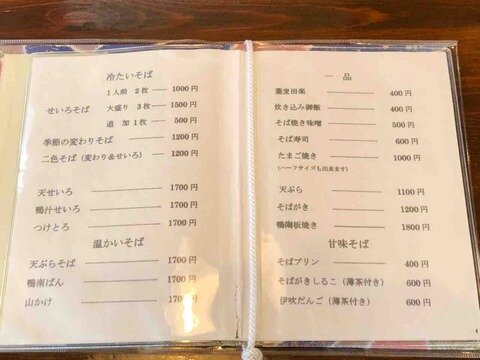 冷たいそば
１人前 ２枚 1000円
せいろそば 大盛り ３枚 1500円
追 加１枚 500円
季節の変わりそば 1200円
二色そば（変わり＆せいろ） 1200円
天せいろ 1700円
鴨汁せいろ 1700円
つけとろ 1700円
温かいそば
天ぷらそば 1700円
鴨南ばん 1700円
山かけ 1700円
一 品
蕎麦田楽 400円
炊き込み御飯 400円
そば焼き味噌 500円
そば寿司 600円
たまご焼き 1000円
（ハーフサイズも出来ます）
天ぷら 1100円
そばがき 1200円
鴨陶板焼き 1800円
甘味そば
そばプリン 400円
そばがきしるこ（薄茶付き） 600円
伊吹だんご（薄茶付き） 600円